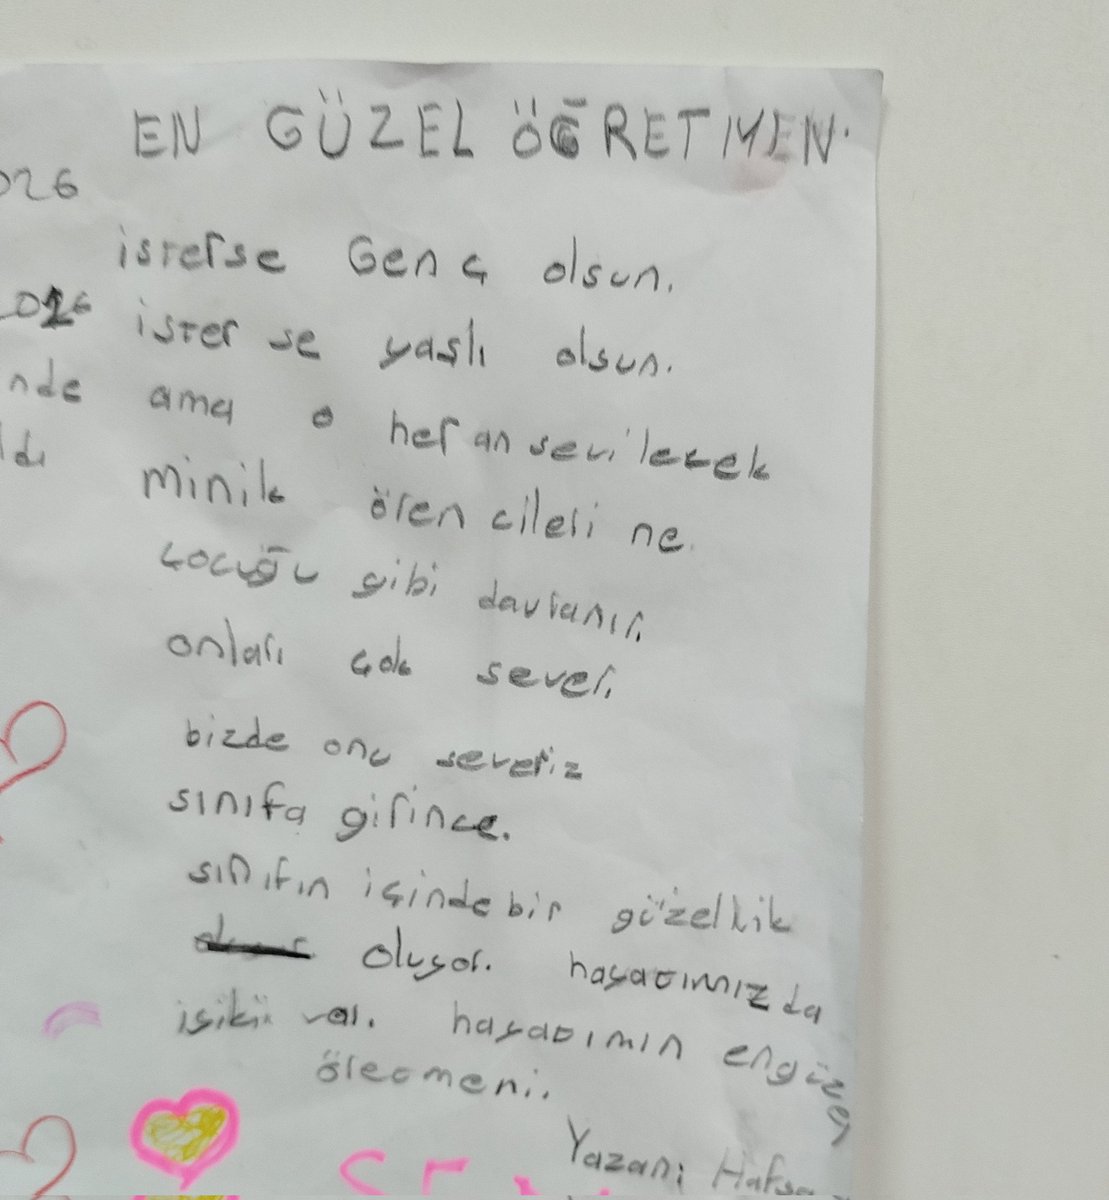 EN GÜZEL ÖĞRETMEN.
026
isterse Genç olsun.
2026
ister se yaşlı olsun.
nde
ama o her an sevilecek
ldı
minik ören cileri ne.
çocuğu gibi davranır.
onları çok sever.
bizde onu severiz
sınıfa girince.
sınıfın içinde bir güzellik
oluyor. hayatımızda
var. hayatımın engüzel
öretmeni.
Yazan: Hafsa